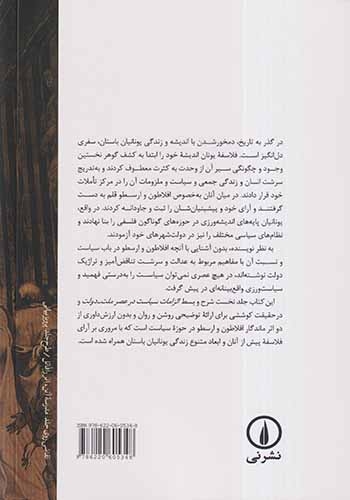 در گذر به تاریخ، دمخورشدن با اندیشه و زندگی یونانیان باستان، سفری
دل‌انگیز است. فلاسفهٔ یونان اندیشهٔ خود را ابتدا به کشف گوهر نخستین
وجود و چگونگی سیر آن از وحدت به کثرت معطوف کردند و به‌تدریج
سرشت انسان و زندگی جمعی و سیاست و ملزومات آن را در مرکز تأملات
خود قرار دادند. در میان آنان به‌خصوص افلاطون و ارسطو قلم به دست
گرفتند و آرای خود و پیشینیان‌شان را ثبت و جاودانه کردند. در واقع،
یونانیان پایه‌های اندیشه‌ورزی در حوزه‌های گوناگون فلسفی را بنا نهادند و
نظام‌های سیاسی مختلف را نیز در دولت‌شهرهای خود آزمودند.
به نظر نویسنده، بدون آشنایی با آنچه افلاطون و ارسطو در باب سیاست
و نسبت آن با مفاهیم مربوط به عدالت و سرشت تناقض‌آمیز و تراژیک
دولت نوشته‌اند، در هیچ عصری نمی‌توان سیاست را به‌درستی فهمید و
سیاست‌ورزی واقع‌بینانه‌ای در پیش گرفت.
این کتاب جلد نخست شرح و بسط الزامات سیاست در عصر ملت‌دولت و
درحقیقت کوششی برای ارائهٔ توضیحی روشن و روان و بدون ارزش‌داوری از
دو اثر ماندگار افلاطون و ارسطو در حوزهٔ سیاست است که با مروری بر آرای
فلاسفهٔ پیش از آنان و ابعاد متنوع زندگی یونانیان باستان همراه شده است.
نقاشی روی جلد: مدرسهٔ آتن، اثر رافائل / طرح جلد: پرویز بیانی
ISBN: 978-622-06-0534-8
9 786220 605348
نشرنی